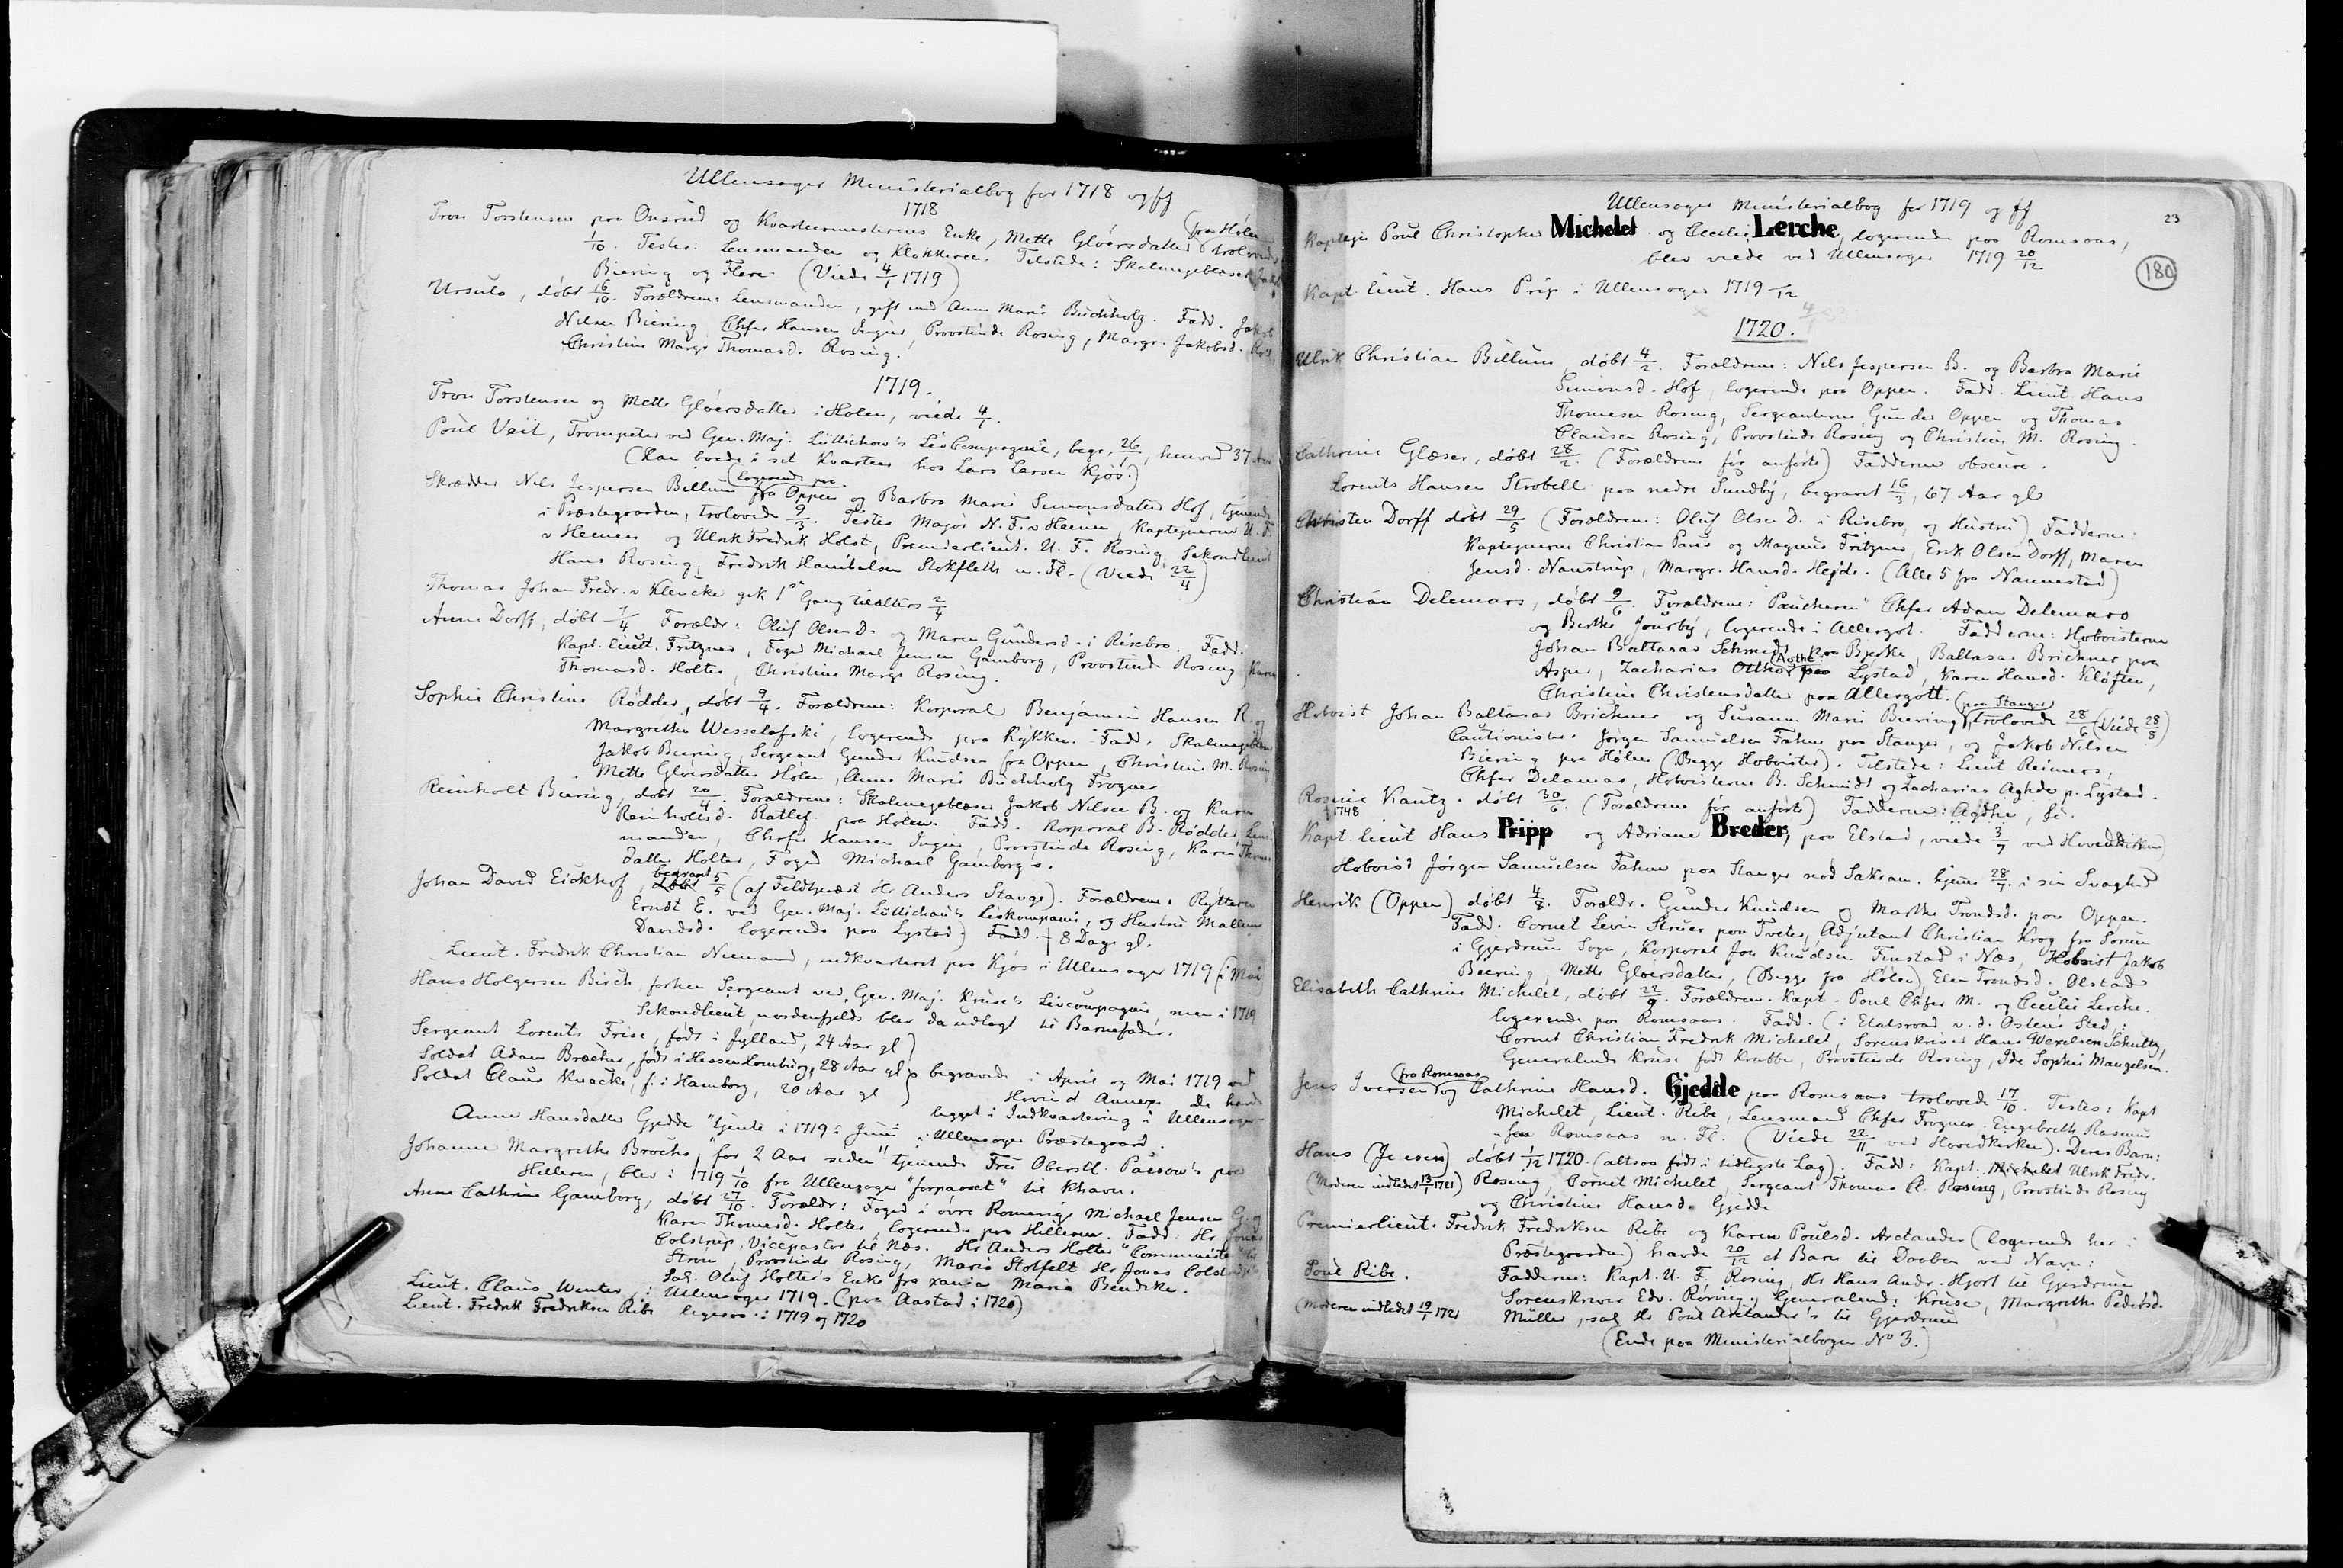 Ullensager Ministerialbog for 1718 og ff
1718
Tron Torstensen paa Onsrud og Kvarteermesterens Enke, Mette Gloersdatter (fra Holen) trolovede
1/10. Testes: Lensmanden og Klokkeren. Tilstede: Skalmejeblæser Jakob
Biering og Flere. (Viede 4/1 1719)
Ursula, døbt 16/10. Forældrene: Lensmanden, gift med Anne Marie Buchholz. Fadd. Jakob
Nilsen Biering, Chfer Hansen Ingier, Provstinde Rosing, Margr. Jakobsd.
Christine Margr. Thomasd. Rosing.
1719.
Tron Torstensen og Mette Gloersdatter i Holen, viede 4/1.
Poul Veit, Trompeter ved Gen. Maj. Lüttichow's Livcompagnie, begr. 26/1, henved 37 Aar
(Han boede i sit Kvarteer hos Lars Larsen Kjøs.)
Skrædder Nils Jespersen Billum (logerende paa) fra Oppen og Barbra Marie Simonsdatter Hof, tjenende
i Præstegaarden, trolovede 9/3. Testes Major N. F. v Heenen, Kaptejnerne U. F.
v Heenen og Ulrik Fredrik Holst, Premierlieut. U. F. Rosing, Sekondlieut
Hans Rosing, Fredrik Hanibalsen Stokfleth m. Fl. (Viede 22/4)
Thomas Johan Fredr. v Klencke gik 1ste Gang tilalters 2/4
Anne Dorff, døbt 7/4. Forældr: Oluf Olsen D. og Maren Gundersd. i Risebro. Fadd.
Kapt. lieut. Fritzner, Foged Michael Jensen Gamborg, Provstinde Rosing, Karen
Thomasd. Holter, Christine Margr. Rosing.
Sophie Christine Rødder, døbt 9/4. Forældrene: Korporal Benjamin Hansen R. og
Margrethe Wesselofski, logerende paa Rykken. Fadd. Skalmejeblæser
Jakob Biering, Sergeant Gunder Knudsen fra Oppen, Christine M. Rosing
Mette Gloersdatter Holen, Anne Marie Buchholz Frogner
Reinholt Biering, døbt 20/4. Forældrene: Skalmejeblæser Jakob Nilsen B. og Karen
Reinholtsd. Ratlef paa Holen. Fadd. Korporal B. Rødder, Lens
manden, Chrfer Hansen Ingier, Provstinde Rosing, Karen Thomas
datter Holter, Foged Michael Gamborg's.
Johan David Eickhof, begravet døbt 5/5 (af Feldtpræst Hr Anders Stange). Forældrene: Rytteren
Erndt E. ved Gen. Maj. Lüttichau's Livkompani, og Hustru Malene
Davidsd. logerende paa Lystad) Fadd. † 8 Dage gl.
Lieut. Fredrik Christian Niemand, indkvarteret paa Kjøs i Ullensager 1719 (i Mai)
Hans Holgersen Birch, forhen Sergeant ved Gen. Maj. Kruse's Livcompagni, men i 1719
Sekondlieut, nordenfjelds blev da udlagt til Barnefader.
Sergeant Lorents Frise, født i Jylland, 24 Aar gl
Soldat Adam Bræcher, født i Hessen Homburg, 28 Aar gl } begravede i April og Mai 1719 ved
Soldat Claus Knacke, f. i Hamborg, 20 Aar gl Hovind Annex. De havde
ligget i Indkvartering i Ullensager
Anne Hansdatter Gjedde "tjente i 1719 i Juni i Ullensager Præstegaard.
Johanne Margrethe Brochs, "for 2 Aar siden" tjenende Fru Oberstl. Passow's paa
Hilleren, blev i 1719 1/10 fra Ullensager "forpasset" til Khavn.
Anne Cathrine Gamborg, døbt 27/10. Forældr: Foged i øvre Romerige Michael Jensen G. og
Karen Thomasd. Holter, logerende paa Hilleren. Fadd: Hr Jonas
Colstrup, Vicepastor til Næs. Hr Anders Holter "Comministe" til
Strøm, Provstinde Rosing, Maria Stolfelt Hr Jonas Colstrup's
Sal. Oluf Holter's Enke fra xania Maria Bendike.
Lieut. Claus Winter, i Ullensager 1719. (paa Aastad i 1720)
Lieut. Fredrik Fredriksen Ribe ligesaa i 1719 og 1720
Ullensager Ministerialbog for 1719 og ff
23
180
Kaptejn Poul Christopher Michelet og Cecilie Lerche, logerende paa Romsaas,
blev viede ved Ullensager 1719 20/12
Kapt. lieut. Hans Prip i Ullensager 1719 /12
1720.
Ulrik Christian Billum, døbt 4/2. Forældrene: Nils Jespersen B. og Barbra Marie
Simonsd. Hof, logerende paa Oppen. Fadd. Lieut. Hans
Thomesen Rosing, Sergeanterne Gunder Oppen og Thomas
Clausen Rosing, Provstinde Rosing og Christine M. Rosing.
Cathrine Glæser, døbt 28/2. (Forældrene før anførte) Fadderne obscure.
Lorents Hansen Strobell paa nedre Sundby, begravet 16/3, 67 Aar gl
Christen Dorff døbt 29/5 (Forældrene: Oluf Olsen D. i Risebro, og Hustru) Fadderne:
Kaptejnerne Christian Paus og Magnus Fritzner, Erik Olsen Dorff, Maren
Jensd. Naustrup, Margr. Hansd. Hejde. (Alle 5 fra Nannestad)
Christian Delemars, døbt 9/6. Forældrene: "Paucheren" Chfer Adam Delemars
og Berthe Jourby, logerende i Allergot. Fadderne: Hoboisterne
Johan Baltasar Schmidt paa Bjerke, Baltasar Brichner paa
Asper, Zacharias Otthe (Agthe) paa Lystad, Karen Hansd. Kløften,
Christine Christensdatter paa Allergott.
Hoboist Johan Baltasar Brichner og Susanne Marie Biering (paa Stanger) trolovede 28/6 (Viede 28/8)
Cautionister. Jørgen Samuelsen Fahne paa Stanger, og Jakob Nilsen
Biering paa Holen (Begge Hoboister). Tilstede: Lieut Reimers,
Chfer Delamas, Hoboisterne B. Schmidt og Zacharias Aghde p. Lystad.
Rosine Kautz. døbt 30/6. (Forældrene før anførte) Fadderne: Agdhe, &c.
† 1748
Kapt. lieut Hans Pripp og Adriane Breder, paa Elstad, viede 3/7 ved Hovedkirken)
Hoboist Jørgen Samuelsen Fahne paa Stanger nød Sakram. hjeme 28/7. i sin Svaghed
Henrik (Oppen) døbt 4/8. Forældr. Gunder Knudsen og Marthe Trondsd. paa Oppen.
Fadd. Cornet Levin Struer paa Tveter, Adjutant Christian Krog fra Sørum
i Gjerdrum Sogn, Korporal Jon Knudsen Finstad i Næs, Hoboist Jakob
Biering, Mette Gloersdatter, (Begge fra Holen) Elen Trondsd. Olstad
Elisabeth Cathrine Michelet, døbt 22/9. Forældrene. Kapt. Poul Chfer M. og Cecilie Lerche.
logerende paa Romsaas. Fadd. (i Etatsraad v. d. Osten's Sted):
Cornet Christian Fredrik Michelet, Sorenskriver Hans Wexelsen Schultz,
Generalinde Kruse født Krabbe, Provstinde Rosing, Ide Sophie Mangelsen.
Jens Iversen (fra Romsaas) og Cathrine Hansd. Gjedde paa Romsaas trolovede 17/10. Testes: Kapt
Michelet, Lieut. Ribe, Lensmand Chfer Frogner. Engebreth Rasmus
Romsaas m. Fl. (Viede 22/11 ved Hovedkirken). Deres Barn:
Hans (Jensen) døbt 1/12 1720. (altsaa født i tidligste Lag). Fadd: Kapt. Michelet Ulrik Fredr.
(Moderen indledet 13/1 1721) Rosing, Cornet Michelet, Sergeant Thomas Cl. Rosing, Provstinde Rosing
og Christine Hansd. Gjedde
Premierlieut. Fredrik Fredriksen Ribe og Karen Poulsd. Arctander (logerende her i
Præstegaarden) havde 20/12 et Barn til Daaben ved Navn:
Poul Ribe. Fadderne: Kapt. U. F. Rosing, Hr Hans Andr. Hjort til Gjerdrum
Sorenskriver Edv. Røring, Generalinde Kruse, Margrethe Pedersd.
(Moderen indledet 19/1 1721 Müller, sal Hr Poul Arctander's til Gjerdrum
(Ende paa Ministerialbogen No 3.)